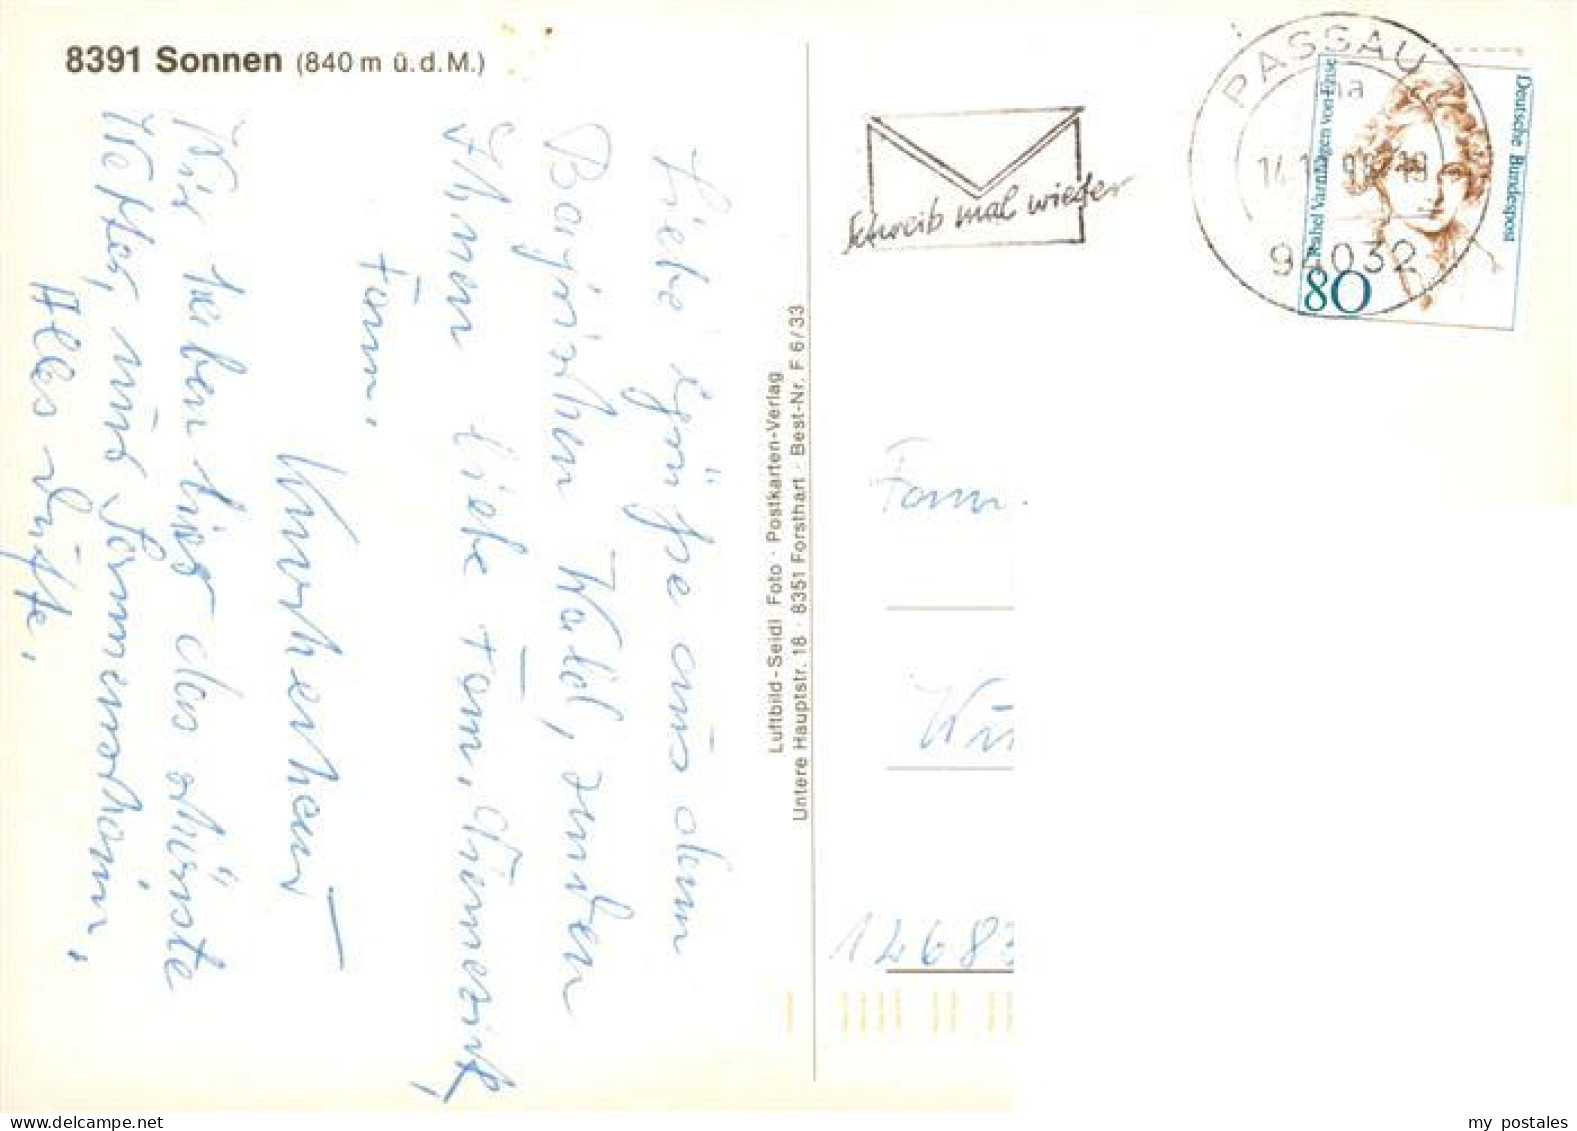 8391 Sonnen (840 m ü. d. M.)
Liebe Grüße aus dem
Bayrischen Wald, senden
Ihnen liebe Fam.
Fam.
Wir haben hier das schönste
Wetter, nur Sonnenschein,
Alles Gute.
Luftbild-Seidl Foto · Postkarten-Verlag
Untere Hauptstr. 18 · 8351 Forsthart · Best-Nr. F 6/33
Schreib mal wieder
PASSAU
94032
Rahel Varnhagen von Ense
Deutsche Bundespost
80
Fam.
12683
my postales